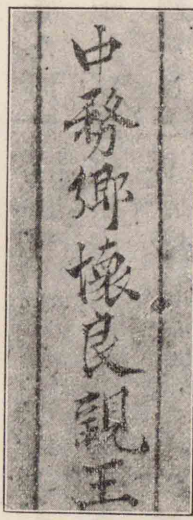 中務卿懐良親王